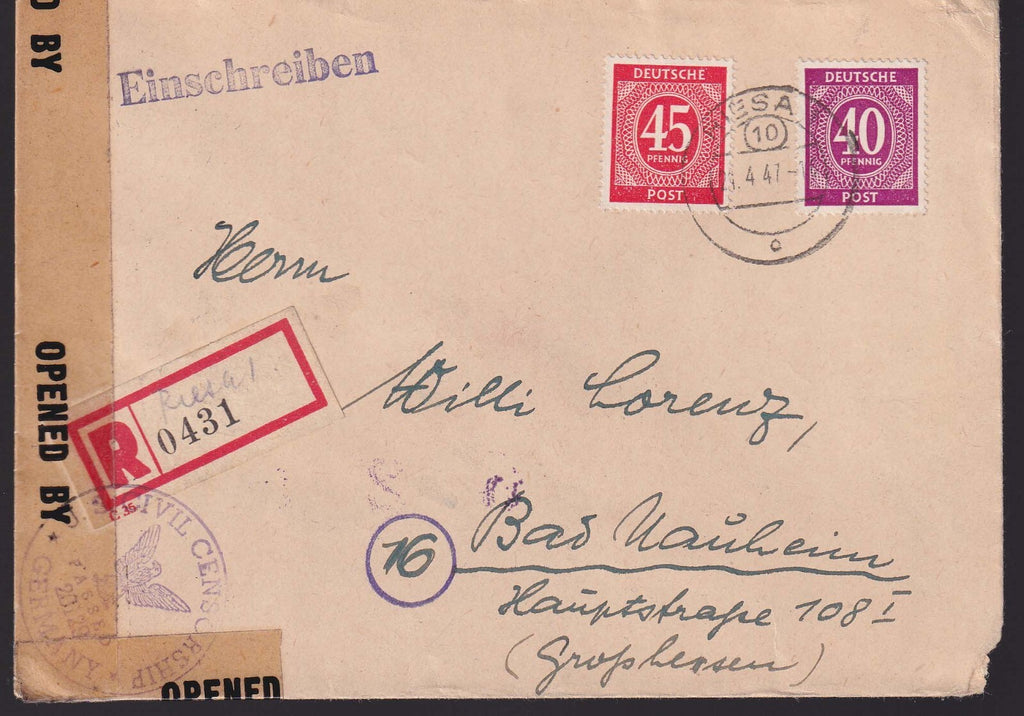 BY
OPENED BY
Einschreiben
DEUTSCHE
45
PFENNIG
POST
DEUTSCHE
40
PFENNIG
POST
ESA
10
4 47
c
Herrn
Riesa 1
R
0431
C 35
Willi Lorenz,
16
Bad Nauheim
Hauptstraße 108 I
(Großhessen)
CIVIL CENSORSHIP
GERMANY
PASSED
OPENED